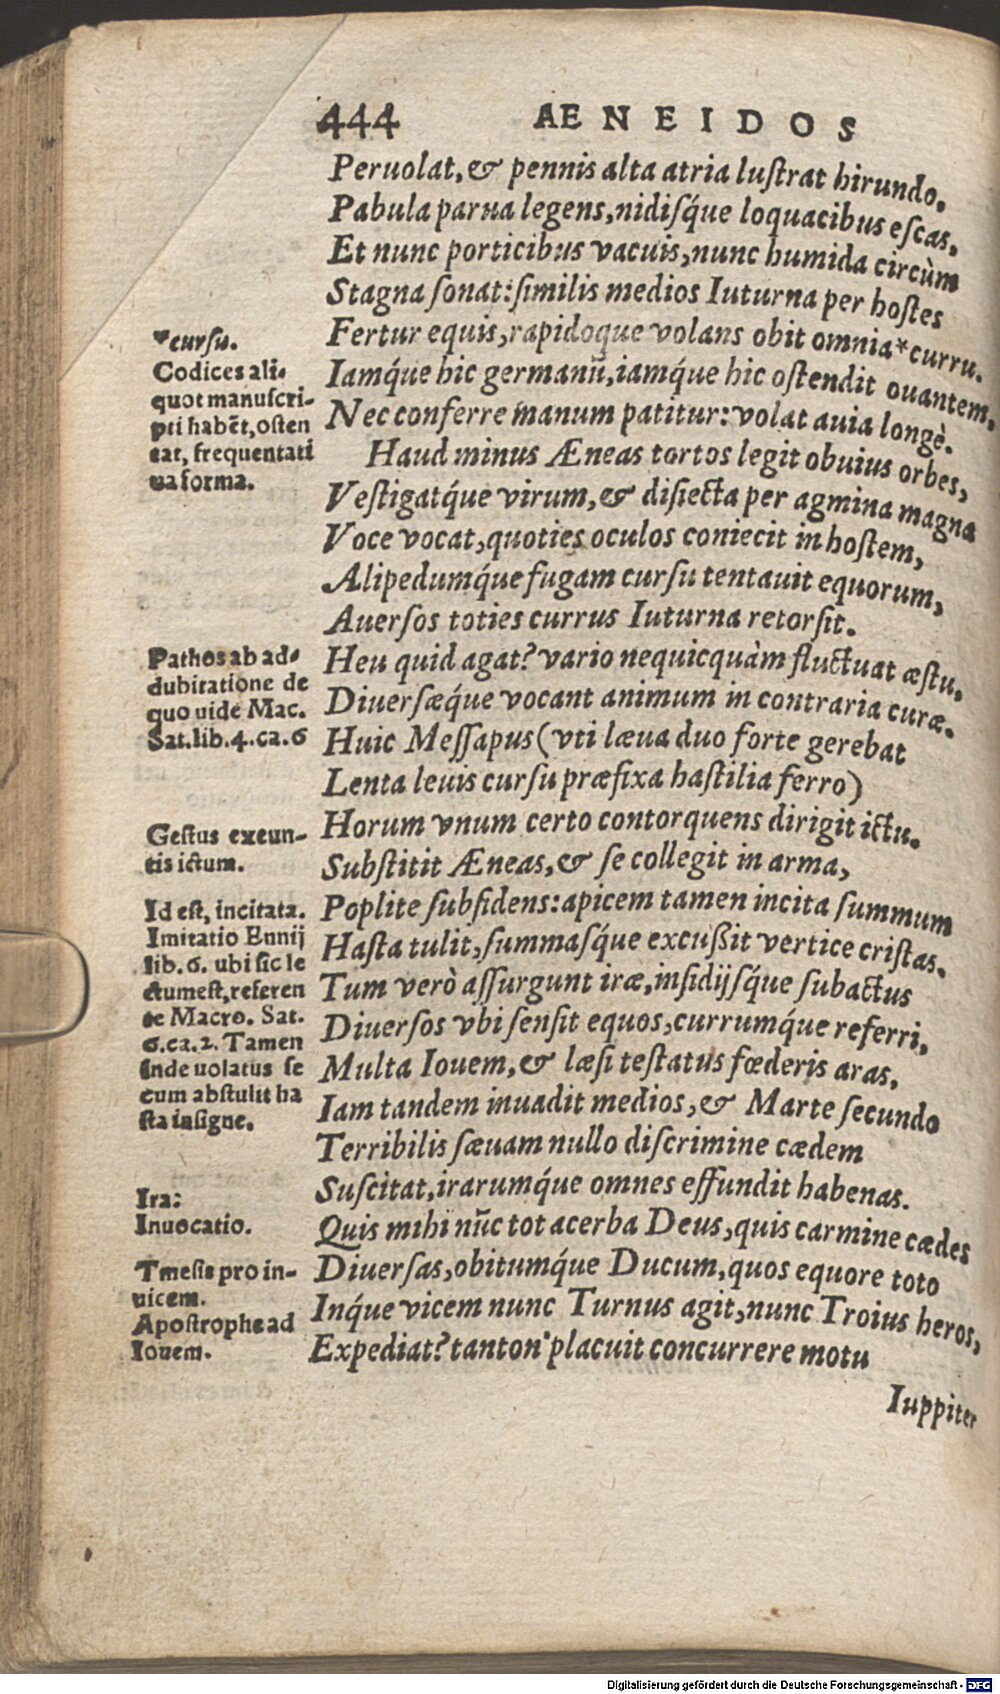 444 AENEIDOS
Peruolat, & pennis alta atria luſtrat hirundo,
Pabula parua legens, nidiſq́ue loquacibus eſcas,
Et nunc porticibus vacuis, nunc humida circùm
Stagna ſonat: ſimilis medios Iuturna per hoſtes
Fertur equis, rapidoque volans obit omnia*curru.
Iamq́ue hic germanū, iamq́ue hic oſtendit ouantem,
Nec conferre manum patitur: volat auia longè.
Haud minus Æneas tortos legit obuius orbes,
Veſtigatq́ue virum, & diſiecta per agmina magna
Voce vocat, quoties oculos coniecit in hoſtem,
Alipedumq́ue fugam curſu tentauit equorum,
Auerſos toties currus Iuturna retorſit.
Heu quid agat? vario nequicquàm fluctuat æſtu,
Diuerſæq́ue vocant animum in contraria curæ.
Huic Meſſapus (vti læua duo forte gerebat
Lenta leuis curſu præfixa haſtilia ferro)
Horum vnum certo contorquens dirigit ictu.
Subſtitit Æneas, & ſe collegit in arma,
Poplite ſubſidens: apicem tamen incita ſummum
Haſta tulit, ſummaſq́ue excußit vertice criſtas.
Tum verò aſſurgunt iræ, inſidijſq́ue ſubactus
Diuerſos vbi ſenſit equos, currumq́ue referri,
Multa Iouem, & læſi teſtatus fœderis aras,
Iam tandem inuadit medios, & Marte ſecundo
Terribilis ſæuam nullo diſcrimine cædem
Suſcitat, irarumq́ue omnes effundit habenas.
Quis mihi nūc tot acerba Deus, quis carmine cædes
Diuerſas, obitumq́ue Ducum, quos equore toto
Inq́ue vicem nunc Turnus agit, nunc Troius heros,
Expediat? tanton' placuit concurrere motu
Iuppiter
*curſu.
Codices ali-
quot manuſcri-
pti habēt, oſten
tat, frequentati
ua forma.
Pathos ab ad-
dubitatione de
quo uide Mac.
Sat. lib. 4. ca. 6
Geſtus exeun-
tis ictum.
Id eſt, incitata.
Imitatio Ennij
lib. 6. ubi ſic le
ctum eſt, referen
te Macro. Sat.
6. ca. 2. Tamen
inde uolatus ſe
cum abſtulit ha
ſta inſigne.
Ira:
Inuocatio.
Tmeſis pro in-
uicem.
Apoſtrophe ad
Iouem.
Digitalisierung gefördert durch die Deutsche Forschungsgemeinschaft - DFG